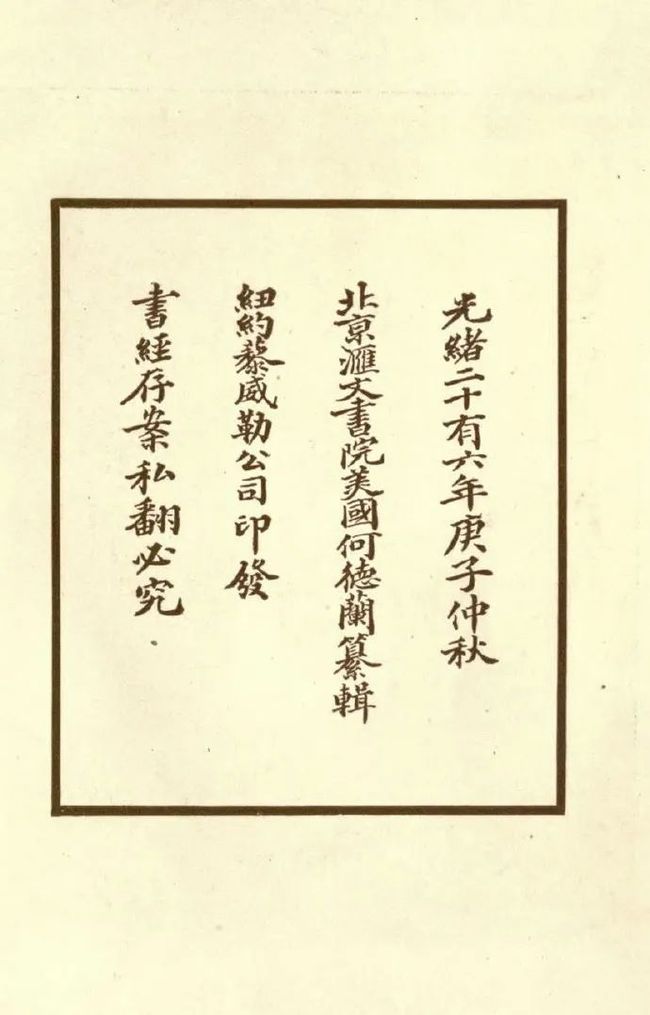 光緒二十有六年庚子仲秋
北京滙文書院美國何德蘭纂輯
紐約黎威勒公司印發
書經存案私翻必究